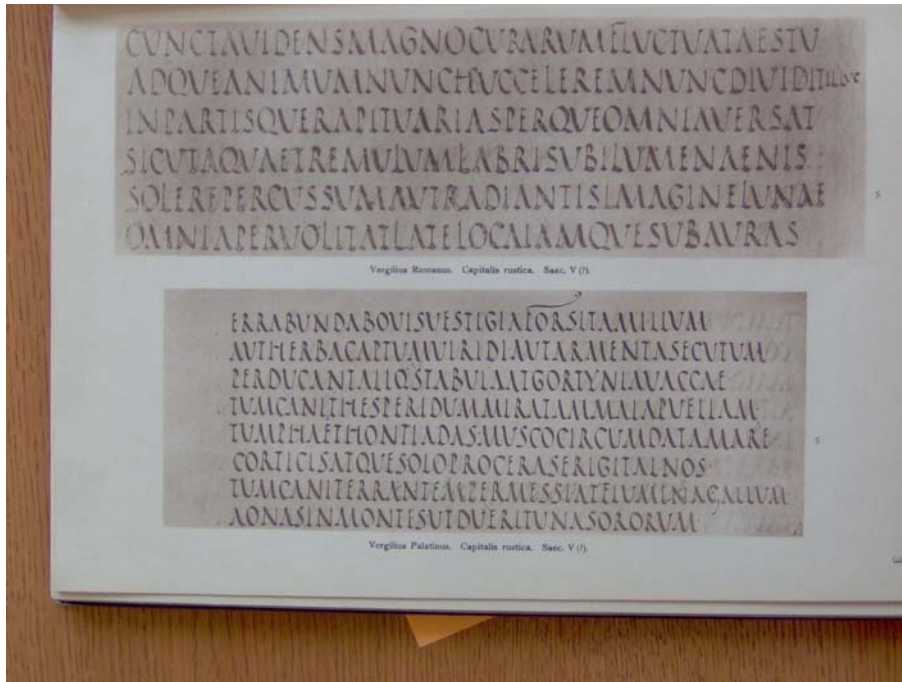 CUNCTAVIDENSMAGNOCURARUMFLUCTUATAESTU
ADQUEANIMUMNUNCHUCCELEREMNUNCDIVIDITilluc
INPARTISQUERAPITVARIASPERQUEOMNIAVERSAT
SICUTAQUAETREMULUMLABRISUBILUMENAENIS
SOLEREPERCUSSUMAUTRADIANTISIMAGINELUNAE
OMNIAPERVOLITATLATELOCAIAMQUESUBAURAS
5
Vergilius Romanus. Capitalis rustica. Saec. V (?).
ERRABUNDABOVISVESTIGIAFORSITAMILLUM
AUTHERBACAPTUMVIRIDIAUTARMENTASECUTUM
PERDUCANTALIQ·STABULAATGORTYNIAVACCAE
TUMCANITHESPERIDUMMIRATAMMALAPUELLAM
TUMPHAETHONTIADASMUSCOCIRCUMDATAMARE
5
CORTICISATQUESOLOPROCERASERIGITALNOS
TUMCANITERRANTEMPERMESSIATFLUMINAGALLUM
AONASINMONTESUTDUERITUNASORORUM
Vergilius Palatinus. Capitalis rustica. Saec. V (?).